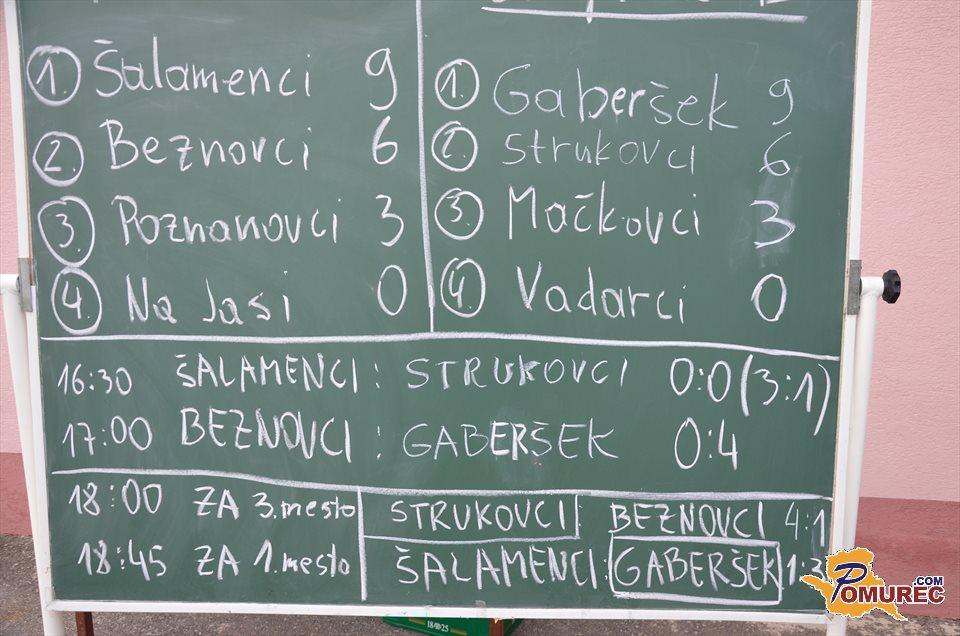 1. Šalamenci 9
2. Beznovci 6
3. Poznanovci 3
4. Na Jasi 0
1. Gaberšek 9
2. Strukovci 6
3. Mačkovci 3
4. Vadarci 0
16:30 ŠALAMENCI : STRUKOVCI 0:0 (3:1)
17:00 BEZNOVCI : GABERŠEK 0:4
18:00 ZA 3. mesto STRUKOVCI : BEZNOVCI 4:1
18:45 ZA 1. mesto ŠALAMENCI : GABERŠEK 1:3
POMUREC.COM